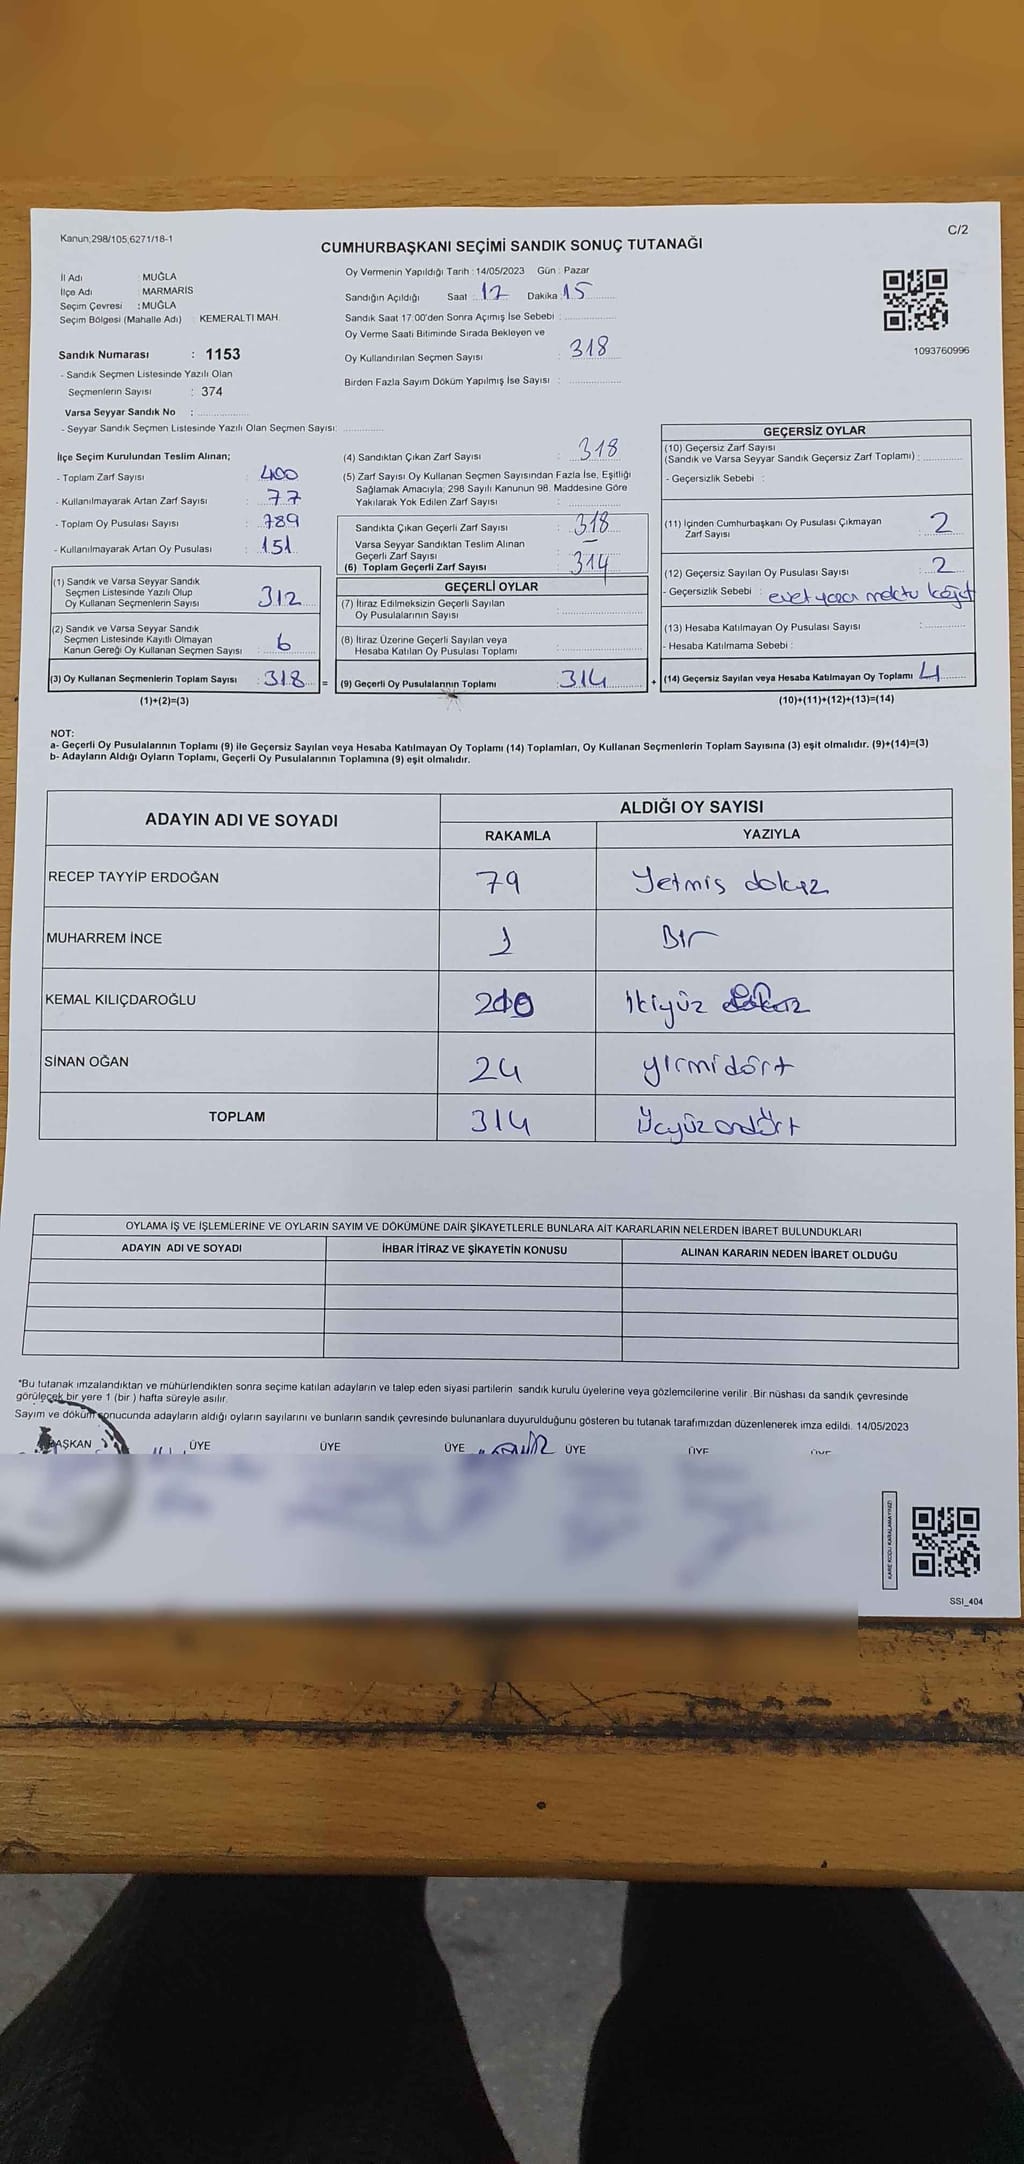 Kanun,298/105,6271/18-1
C/2
CUMHURBAŞKANI SEÇİMİ SANDIK SONUÇ TUTANAĞI
İl Adı : MUĞLA
İlçe Adı : MARMARİS
Seçim Çevresi : MUĞLA
Seçim Bölgesi (Mahalle Adı) KEMERALTI MAH.
Sandık Numarası : 1153
- Sandık Seçmen Listesinde Yazılı Olan
Seçmenlerin Sayısı : 374
Varsa Seyyar Sandık No :
- Seyyar Sandık Seçmen Listesinde Yazılı Olan Seçmen Sayısı:
Oy Vermenin Yapıldığı Tarih : 14/05/2023 Gün : Pazar
Sandığın Açıldığı Saat 17 Dakika 15
Sandık Saat 17:00'den Sonra Açımış İse Sebebi :
Oy Verme Saati Bitiminde Sırada Bekleyen ve
Oy Kullandırılan Seçmen Sayısı : 318
Birden Fazla Sayım Döküm Yapılmış İse Sayısı :
1093760996
İlçe Seçim Kurulundan Teslim Alınan;
- Toplam Zarf Sayısı : 400
- Kullanılmayarak Artan Zarf Sayısı : 77
- Toplam Oy Pusulası Sayısı : 789
- Kullanılmayarak Artan Oy Pusulası : 151
(1) Sandık ve Varsa Seyyar Sandık
Seçmen Listesinde Yazılı Olup
Oy Kullanan Seçmenlerin Sayısı : 312
(2) Sandık ve Varsa Seyyar Sandık
Seçmen Listesinde Kayıtlı Olmayan
Kanun Gereği Oy Kullanan Seçmen Sayısı : 6
(3) Oy Kullanan Seçmenlerin Toplam Sayısı : 318 =
(1)+(2)=(3)
(4) Sandıktan Çıkan Zarf Sayısı : 318
(5) Zarf Sayısı Oy Kullanan Seçmen Sayısından Fazla İse, Eşitliği
Sağlamak Amacıyla; 298 Sayılı Kanunun 98. Maddesine Göre
Yakılarak Yok Edilen Zarf Sayısı :
Sandıkta Çıkan Geçerli Zarf Sayısı : 318
Varsa Seyyar Sandıktan Teslim Alınan
Geçerli Zarf Sayısı : –
(6) Toplam Geçerli Zarf Sayısı : 314
GEÇERLİ OYLAR
(7) İtiraz Edilmeksizin Geçerli Sayılan
Oy Pusulalarının Sayısı :
(8) İtiraz Üzerine Geçerli Sayılan veya
Hesaba Katılan Oy Pusulası Toplamı :
(9) Geçerli Oy Pusulalarının Toplamı : 314 +
GEÇERSİZ OYLAR
(10) Geçersiz Zarf Sayısı
(Sandık ve Varsa Seyyar Sandık Geçersiz Zarf Toplamı) :
- Geçersizlik Sebebi :
(11) İçinden Cumhurbaşkanı Oy Pusulası Çıkmayan
Zarf Sayısı : 2
(12) Geçersiz Sayılan Oy Pusulası Sayısı : 2
- Geçersizlik Sebebi : evet
(13) Hesaba Katılmayan Oy Pusulası Sayısı :
- Hesaba Katılmama Sebebi :
(14) Geçersiz Sayılan veya Hesaba Katılmayan Oy Toplamı 4
(10)+(11)+(12)+(13)=(14)
NOT:
a- Geçerli Oy Pusulalarının Toplamı (9) ile Geçersiz Sayılan veya Hesaba Katılmayan Oy Toplamı (14) Toplamları, Oy Kullanan Seçmenlerin Toplam Sayısına (3) eşit olmalıdır. (9)+(14)=(3)
b- Adayların Aldığı Oyların Toplamı, Geçerli Oy Pusulalarının Toplamına (9) eşit olmalıdır.
ADAYIN ADI VE SOYADI ALDIĞI OY SAYISI
RAKAMLA YAZIYLA
RECEP TAYYİP ERDOĞAN 79 Yetmiş dokuz
MUHARREM İNCE 1 Bir
KEMAL KILIÇDAROĞLU 210 ikiyüz
SİNAN OĞAN 24 yirmidört
TOPLAM 314 Üçyüzondört
OYLAMA İŞ VE İŞLEMLERİNE VE OYLARIN SAYIM VE DÖKÜMÜNE DAİR ŞİKAYETLERLE BUNLARA AİT KARARLARIN NELERDEN İBARET BULUNDUKLARI
ADAYIN ADI VE SOYADI İHBAR İTİRAZ VE ŞİKAYETİN KONUSU ALINAN KARARIN NEDEN İBARET OLDUĞU
*Bu tutanak imzalandıktan ve mühürlendikten sonra seçime katılan adayların ve talep eden siyasi partilerin sandık kurulu üyelerine veya gözlemcilerine verilir .Bir nüshası da sandık çevresinde
görülecek bir yere 1 (bir ) hafta süreyle asılır.
Sayım ve döküm sonucunda adayların aldığı oyların sayılarını ve bunların sandık çevresinde bulunanlara duyurulduğunu gösteren bu tutanak tarafımızdan düzenlenerek imza edildi. 14/05/2023
BAŞKAN ÜYE ÜYE ÜYE ÜYE ÜYE ÜYE
KARE KODU KARALAMAYINIZ!
SSI_404